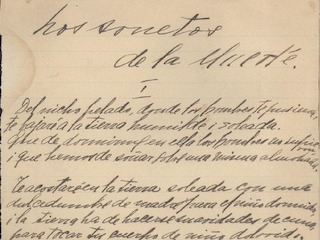 Los sonetos
de la Muerte.
I
Del nicho helado, donde los hombres te pusieron,
te bajaré a la tierra humilde i soleada.
Que he de dormirme en ella los hombres no supieron,
i que hemos de soñar sobre una misma almohada.
Te acostaré en la tierra soleada con una
dulcedumbre de madre para el niño dormido,
i la tierra ha de hacerse suavidades de cuna
para tocar tu cuerpo de niño dolorido.